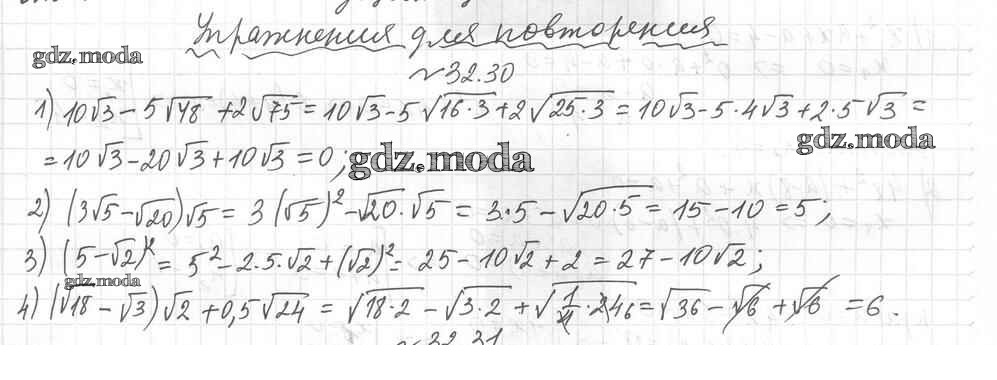 Упражнения для повторения
gdz.moda
№32.30
1) 10√3 − 5√48 + 2√75 = 10√3 − 5√(16·3) + 2√(25·3) = 10√3 − 5·4√3 + 2·5√3 =
gdz.moda
= 10√3 − 20√3 + 10√3 = 0;
gdz.moda
2) (3√5 − √20)√5 = 3(√5)² − √20·√5 = 3·5 − √(20·5) = 15 − 10 = 5;
3) (5 − √2)² = 5² − 2·5·√2 + (√2)² = 25 − 10√2 + 2 = 27 − 10√2;
gdz.moda
4) (√18 − √3)√2 + 0,5√24 = √(18·2) − √(3·2) + √(1/4 · 24 6) = √36 − √6 + √6 = 6.